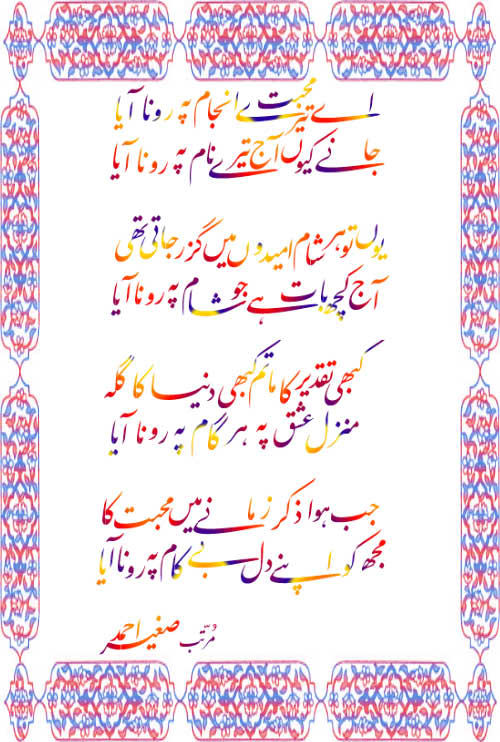 اے محبت تیرے انجام پہ رونا آیا
جانے کیوں آج تیرے نام پہ رونا آیا
یوں تو ہر شام امیدوں میں گزر جاتی تھی
آج کچھ بات ہے جو شام پہ رونا آیا
کبھی تقدیر کا ماتم کبھی دنیا کا گلہ
منزل عشق پہ ہر گام پہ رونا آیا
جب ہوا ذکر زمانے میں محبت کا
مجھ کو اپنے دل بے کام پہ رونا آیا
مُرتّب صغیر احمد